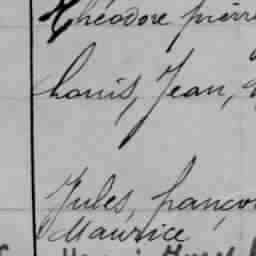 Théodore pierre
Louis, Jean,
Jules, françois
Maurice